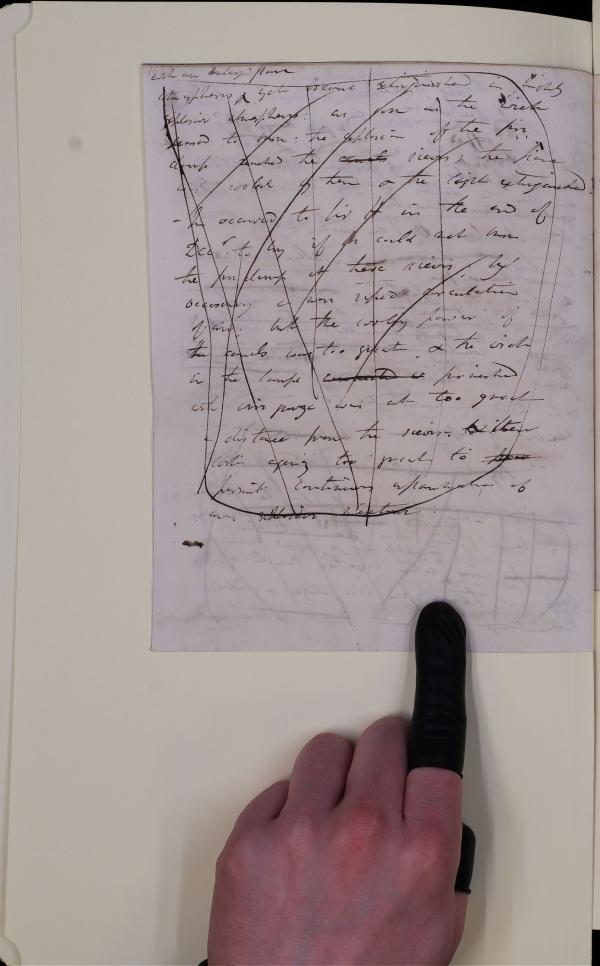 with an enlarged flame
atmospheres & yet become extinguished in highly
explosive atmospheres: as soon as the wick
ceased to burn: the explosion of the fire
damp heated the sieves, the flame
was cooled by them & the light extinguished
- It occurred to Sir H in the end of
Decr to try if he could not burn
the firedamp at these sieves by
occasioning a more rapid circulation
of air: but the cooling power of
the sieves was too great & the wick
in the lamps provided
with wire gauze was at too great
a distance from the sieves. their
cooling agency too great to
permit continuous of
an explosive mixture.